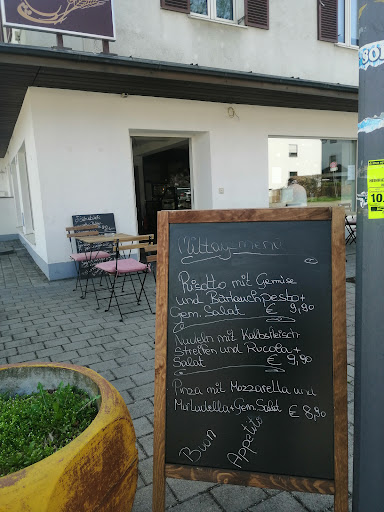 Mittag-menü
Risotto mit Gemüse
und Bärlauchpesto+
Gem. Salat € 9,90
Nudeln mit Kalbsfleisch
streifen und Rucola+
Salat € 9,90
Pinza mit Mozzarella und
Mortadella+Gem. Salat € 8,90
Buon
Appetito
10.